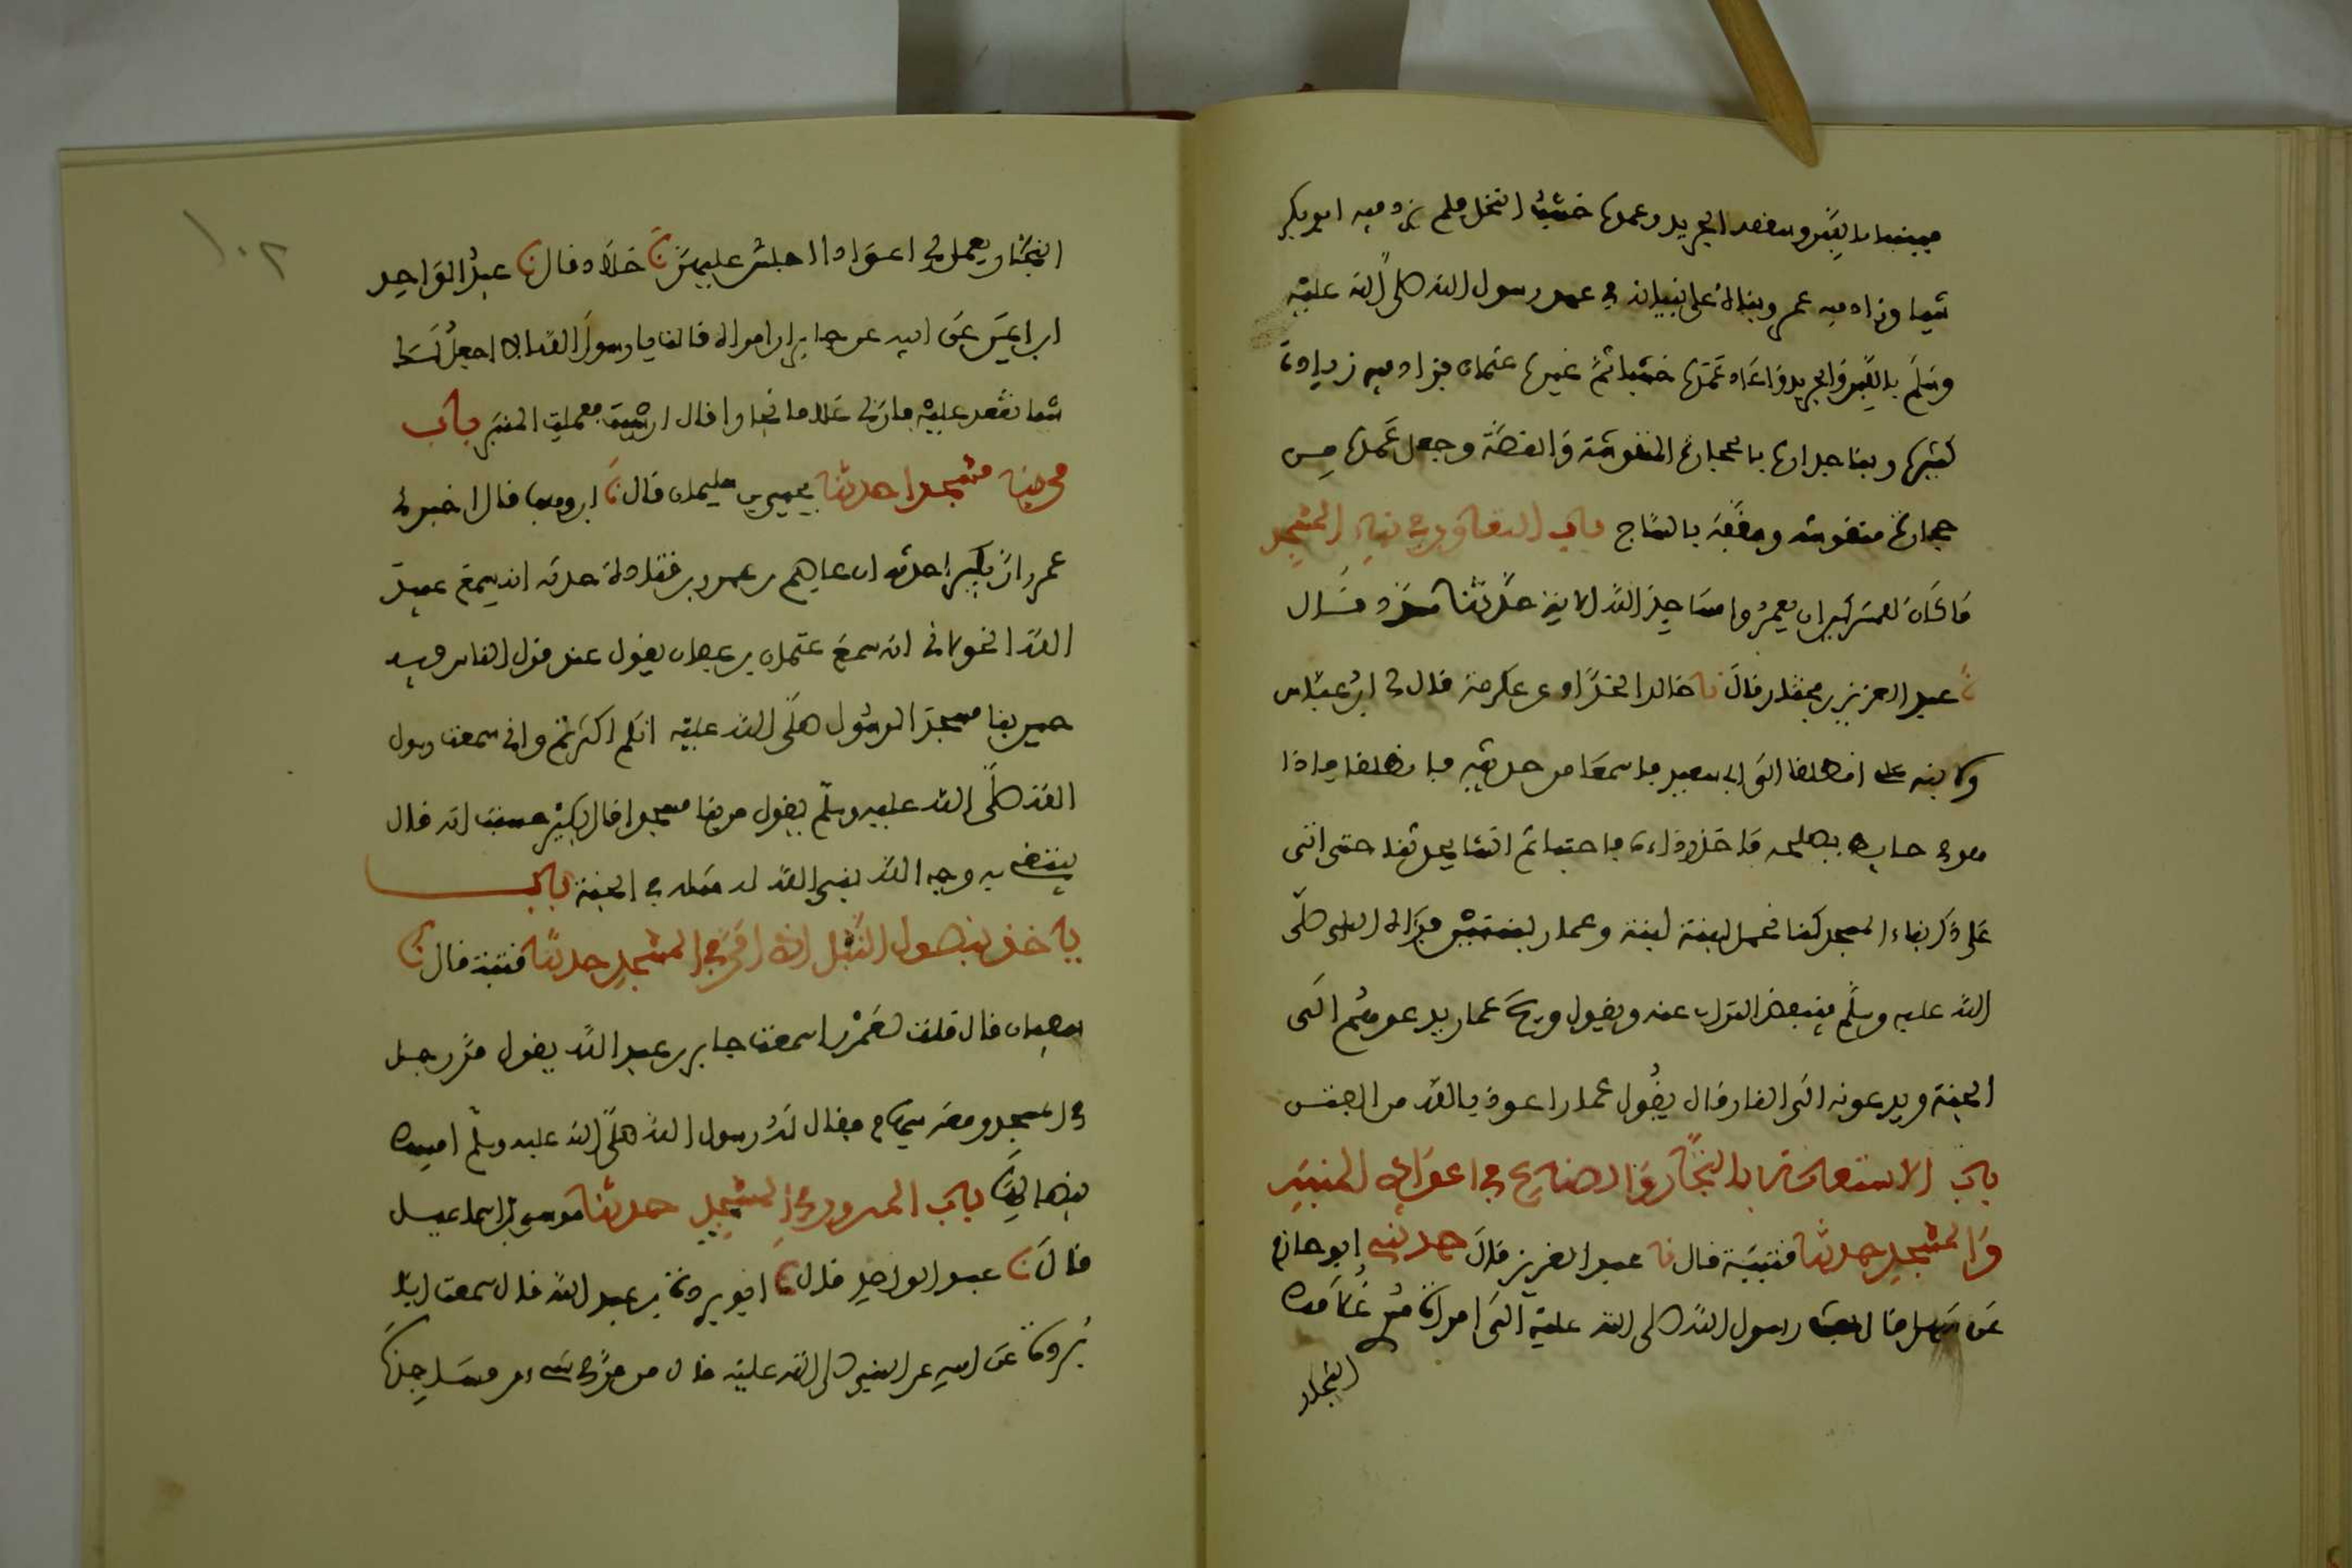 مبنيا باللبن وسقفه الجريد وعمده خشب النخل فلم يزد فيه ابو بكر
شيا وزاد فيه عمر وبناه على بنيانه في عهد رسول الله صلى الله عليه
وسلم باللبن والجريد واعاد عمده خشبا ثم غيره عثمان فزاد فيه زيادة
كثيرة وبنا جداره بالحجارة المنقوشة والقصة وجعل عمده من
حجارة منقوشة وسقفه بالساج باب التعاون في بناء المسجد
ما كان للمشركين ان يعمروا مساجد الله الاية حدثنا مسدد قال
نا عبد العزيز بن مختار قال نا خالد الحذاء عن عكرمة قال لي ابن عباس
ولابنه علي انطلقا الى ابي سعيد فاسمعا من حديثه فانطلقنا فاذا
هو في حايط يصلحه فاخذ رداءه فاحتبا ثم انشا يحدثنا حتى اتى
على ذكر بناء المسجد كنا نحمل لبنة لبنة وعمار لبنتين فرءاه النبي صلى
الله عليه وسلم فينفض التراب عنه ويقول ويح عمار يدعوهم الى
الجنة ويدعونه الى النار قال يقول عمار اعوذ بالله من الفتن
باب الاستعانة بالنجار والصناع في اعواد المنبر
والمسجد حدثنا قتيبة قال نا عبد العزيز قال حدثني ابو حازم
عن سهل قال بعث رسول الله صلى الله عليه الى امراة مري غلامك
النجار
١٠٢
النجار يعمل لي اعوادا اجلس عليهن نا خلاد قال نا عبد الواحد
ابن ايمن عن ابيه عن جابر ان امراة قالت يا رسول الله الا اجعل لك
شيا تقعد عليه فان لي غلاما نجارا قال ان شيت فعملت المنبر باب
من بنا مسجدا حدثنا يحيى بن سليمان قال نا ابن وهب قال اخبرني
عمرو ان بكيرا حدثه ان عاصم بن عمر بن قتادة حدثه انه سمع عبيد
الله الخولاني انه سمع عثمان بن عفان يقول عند قول الناس فيه
حين بنا مسجد الرسول صلى الله عليه انكم اكثرتم واني سمعت رسول
الله صلى الله عليه وسلم يقول من بنا مسجدا قال بكير حسبت انه قال
يبتغي به وجه الله بنى الله له مثله في الجنة باب
ياخذ بنصول النبل اذا مر في المسجد حدثنا قتيبة قال نا
سفيان قال قلت لعمرو اسمعت جابر بن عبد الله يقول مر رجل
في المسجد ومعه سهام فقال له رسول الله صلى الله عليه وسلم امسك
بنصالها باب المرور في المسجد حدثنا موسى بن اسماعيل
قال نا عبد الواحد قال نا ابو بردة بن عبد الله قال سمعت ابا
بردة عن ابيه عن النبي صلى الله عليه قال من مر في شيء من مساجدنا